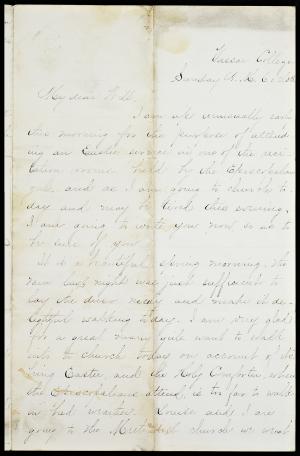 Vassar College
Sunday A.M.
My dear Will,
I am up unusually early
this morning for the purpose of attend-
ing an Easter service in one of the reci-
tation rooms held by the Episcopalian
girls, and as I am going to church to-
day and may be tired this evening,
I am going to write you now so as to
be sure of you.
It is a beautiful spring morning, the
rain last night was just sufficient to
lay the dust nicely and make it de-
lightful walking today. I am very glad
for a great many girls want to walk
into church today on account of its
being Easter, and the Holy Comforter, where
the Episcopalians attend, is too far to walk
in bad weather. Louise and I are
going to the Methodist church we want